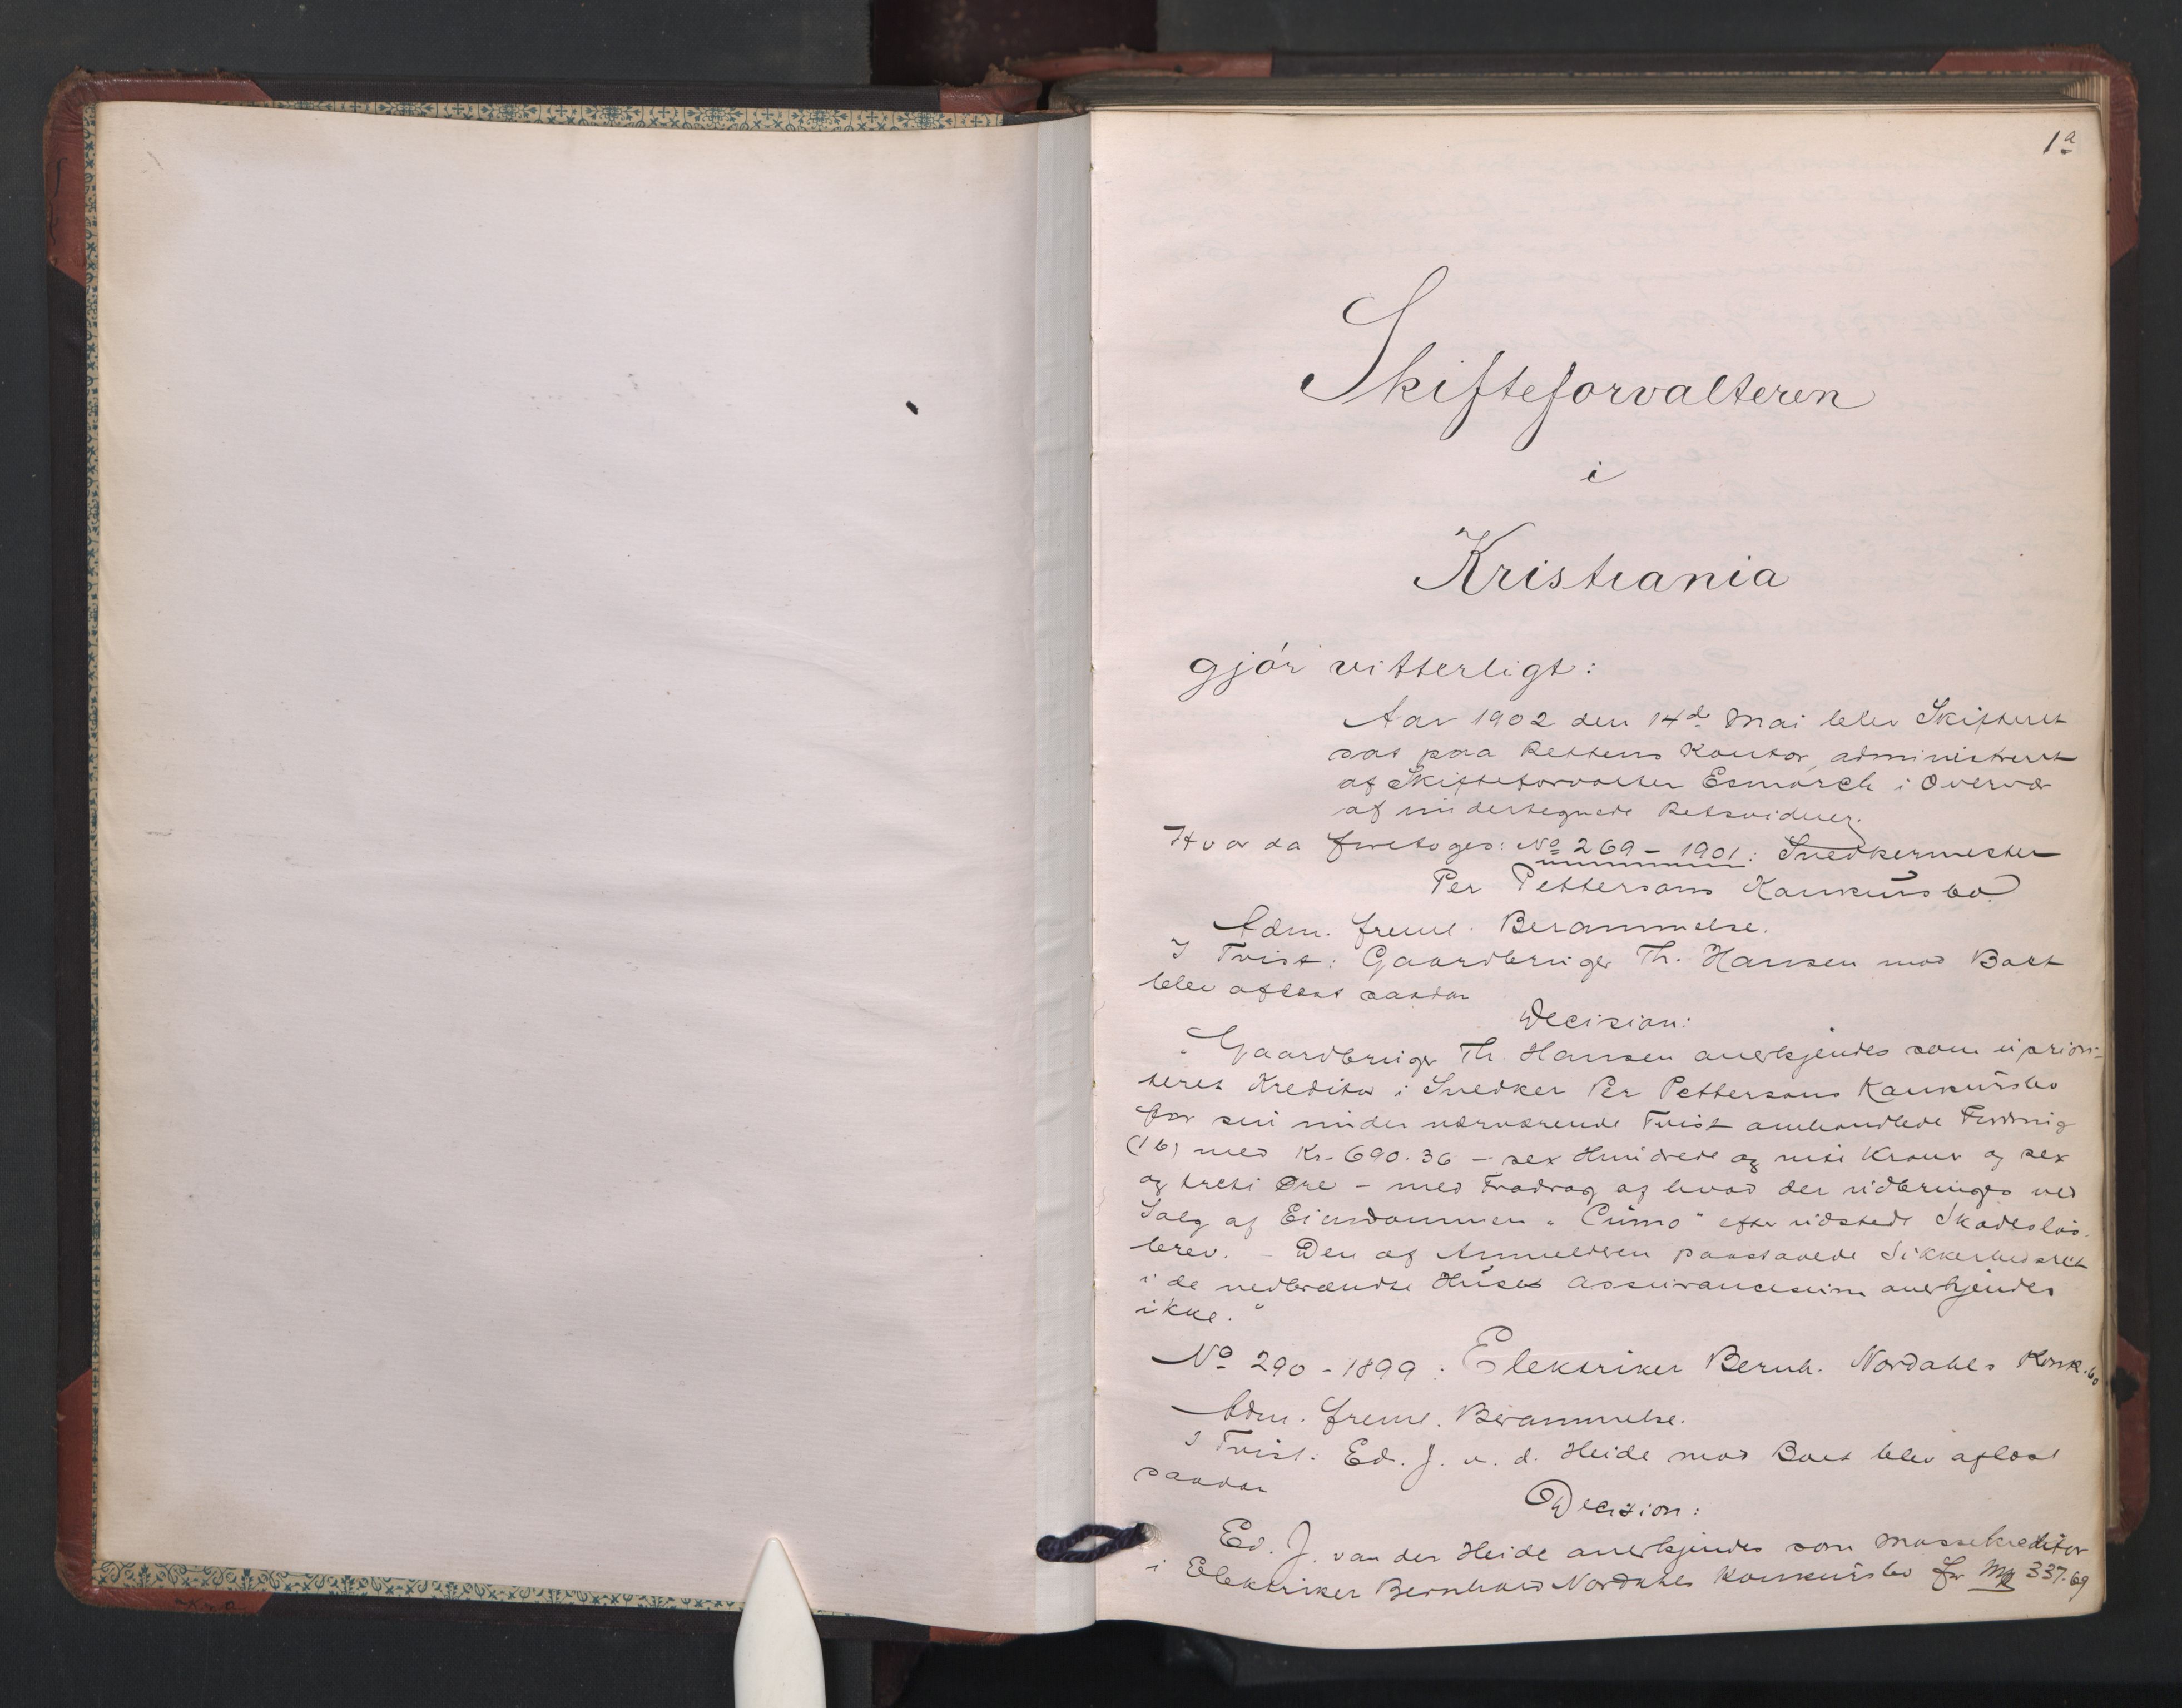 1a
Skifteforvalteren
i
Kristiania
gjör vitterligt:
Aar 1902 den 14d Mai blev Skifteret
sat paa Rettens Kontor, administreret
af Skifteforvalter Esmarch i Overvær
af undertegnede Retsvidner.
Hvor da foretoges: No 269 - 1901: Snedkermester
Per Pettersons Konkursbo.
Adm. freml. Berammelse.
I Tvist: Gaardbruger Th. Hansen mod Boet
blev aflæst saadan
Decision:
"Gaardbruger Th. Hansen anerkjendes som uprior-
teret Kreditor i Snedker Per Pettersons Konkursbo
for sin under nærværende Tvist omhandlede Fordring
(16) med Kr. 690.36 - sex Hundrede og niti Kroner og sex
og treti Øre - med Fradrag af hvad der udbringes ved
Salg af Eiendommen "Cumo" efter udstedt Skadeslös-
brev. - Den af Anmelderen paastaaede Sikkerhedsret
i de nedbrændte Huses Assurancesum anerkjendes
ikke."
No 290 - 1899: Elektriker Bernh. Nordahls Konk.bo
Adm. freml. Berammelse.
I Tvist: Ed. J. v. d. Heide mod Boet blev aflæst
saadan
Decision:
Ed. J. van der Heide anerkjendes som Massekreditor
i Elektriker Bernhard Nordahls Konkursbo for Mk 337.69